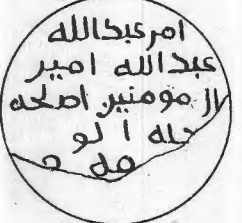 امر عبدالله
عبدالله امير
المومنين اصلحه
الله ا لو